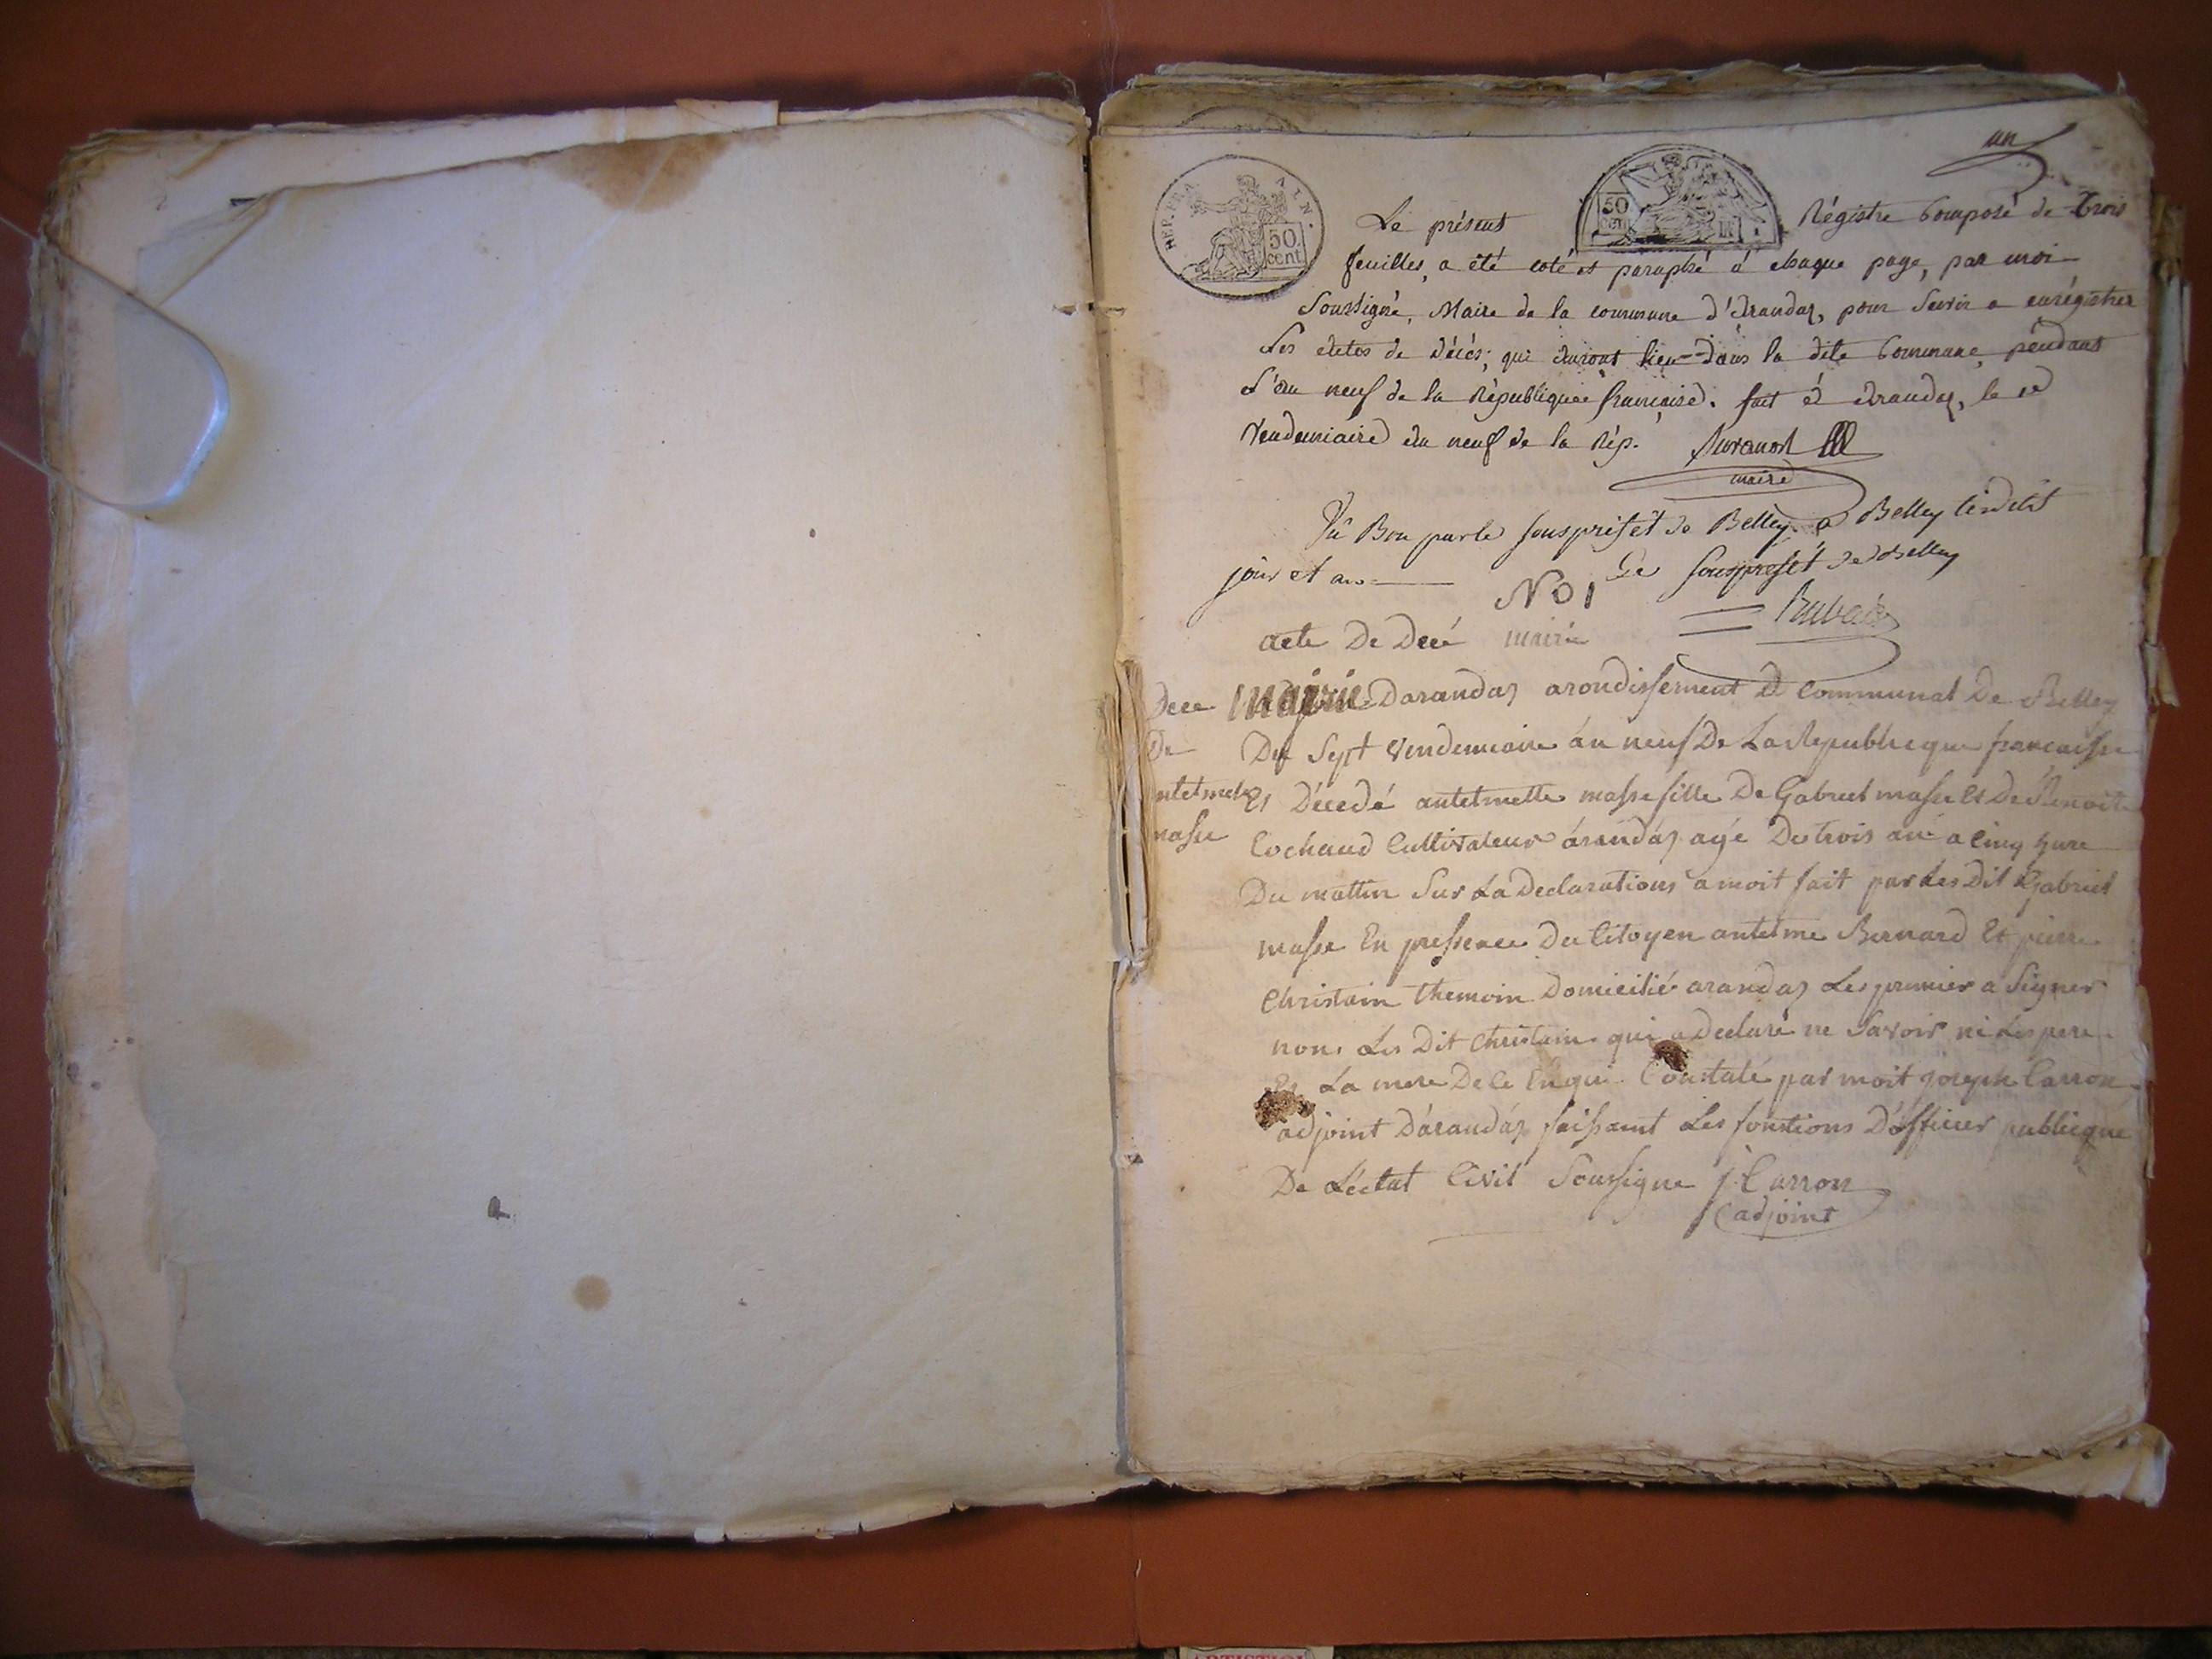 un
REP. FRA. AIN.
50 cent
50 cen
Le présent Régistre Composé de Trois
feuilles, a été coté et paraphé à chaque page, par moi
Soussigné, Maire de la commune d'Arandas, pour servir a enrégistrer
Les Actes de Décés, qui auront lieu dans la dite Commune, pendant
L'an neuf de la République française. fait à Arandas, le
Vendemiaire an neuf de la Rép.
maire
Vû Bon par le souspréfét de Belley. a Belley lesdits
jour et an
Le souspréfét de Belley
No 1
acte De Decé mairie
mairie Darandas arondissement Communal De Belley
Du Sept vendemiaire án neuf De La Republicque francaisse
Et Décedé antelmette masse fille De Gabriel masse Et De Benoite
Cochaud Cultivateur árandas agé De trois an a cinq hure
Du mattin Sur La Declarations a moit fait par Les Dit Gabriel
masse En pressence Du Citoyen antelme Bernard Et pierre
Christain themoin Domicilié arandas Les premier a Signer
non Les Dit Christain qui a Declaré ne Savoir ni Les pere
Et La mere De ce Enqui Constaté par moit joseph Carron
adjoint Dárandas faissant Les fontions D'officier publicque
De L'éctat Civil Soussigne j. Carron
adjoint
Dece
De
antelmette
masse